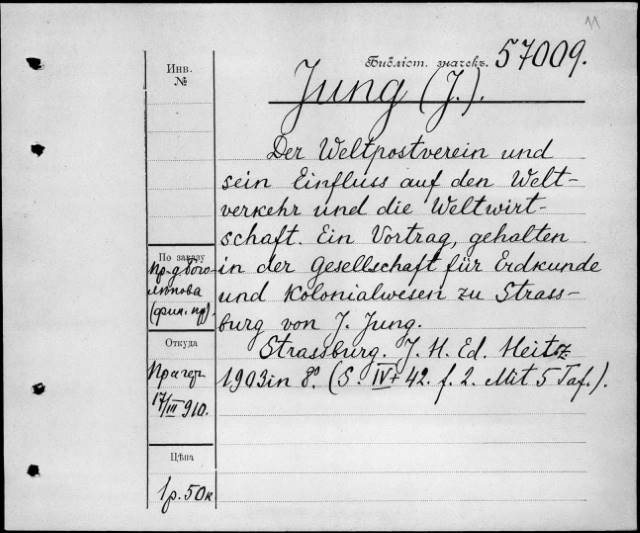 11
Библіот. значекъ. 57009.
Инв.
№
Jung (J.).
Der Weltpostverein und
sein Einfluss auf den Welt-
verkehr und die Weltwirt-
schaft. Ein Vortrag, gehalten
in der Gesellschaft für Erdkunde
und Kolonialwesen zu Strass-
burg von J. Jung.
Strassburg. J. H. Ed. Heitz
1903 in 8°. (S. IV + 42. f. 2. Mit 5 Taf.).
По заказу
(фин. пр).
Откуда
Прагер
17/III 910.
Цѣна
1р. 50к